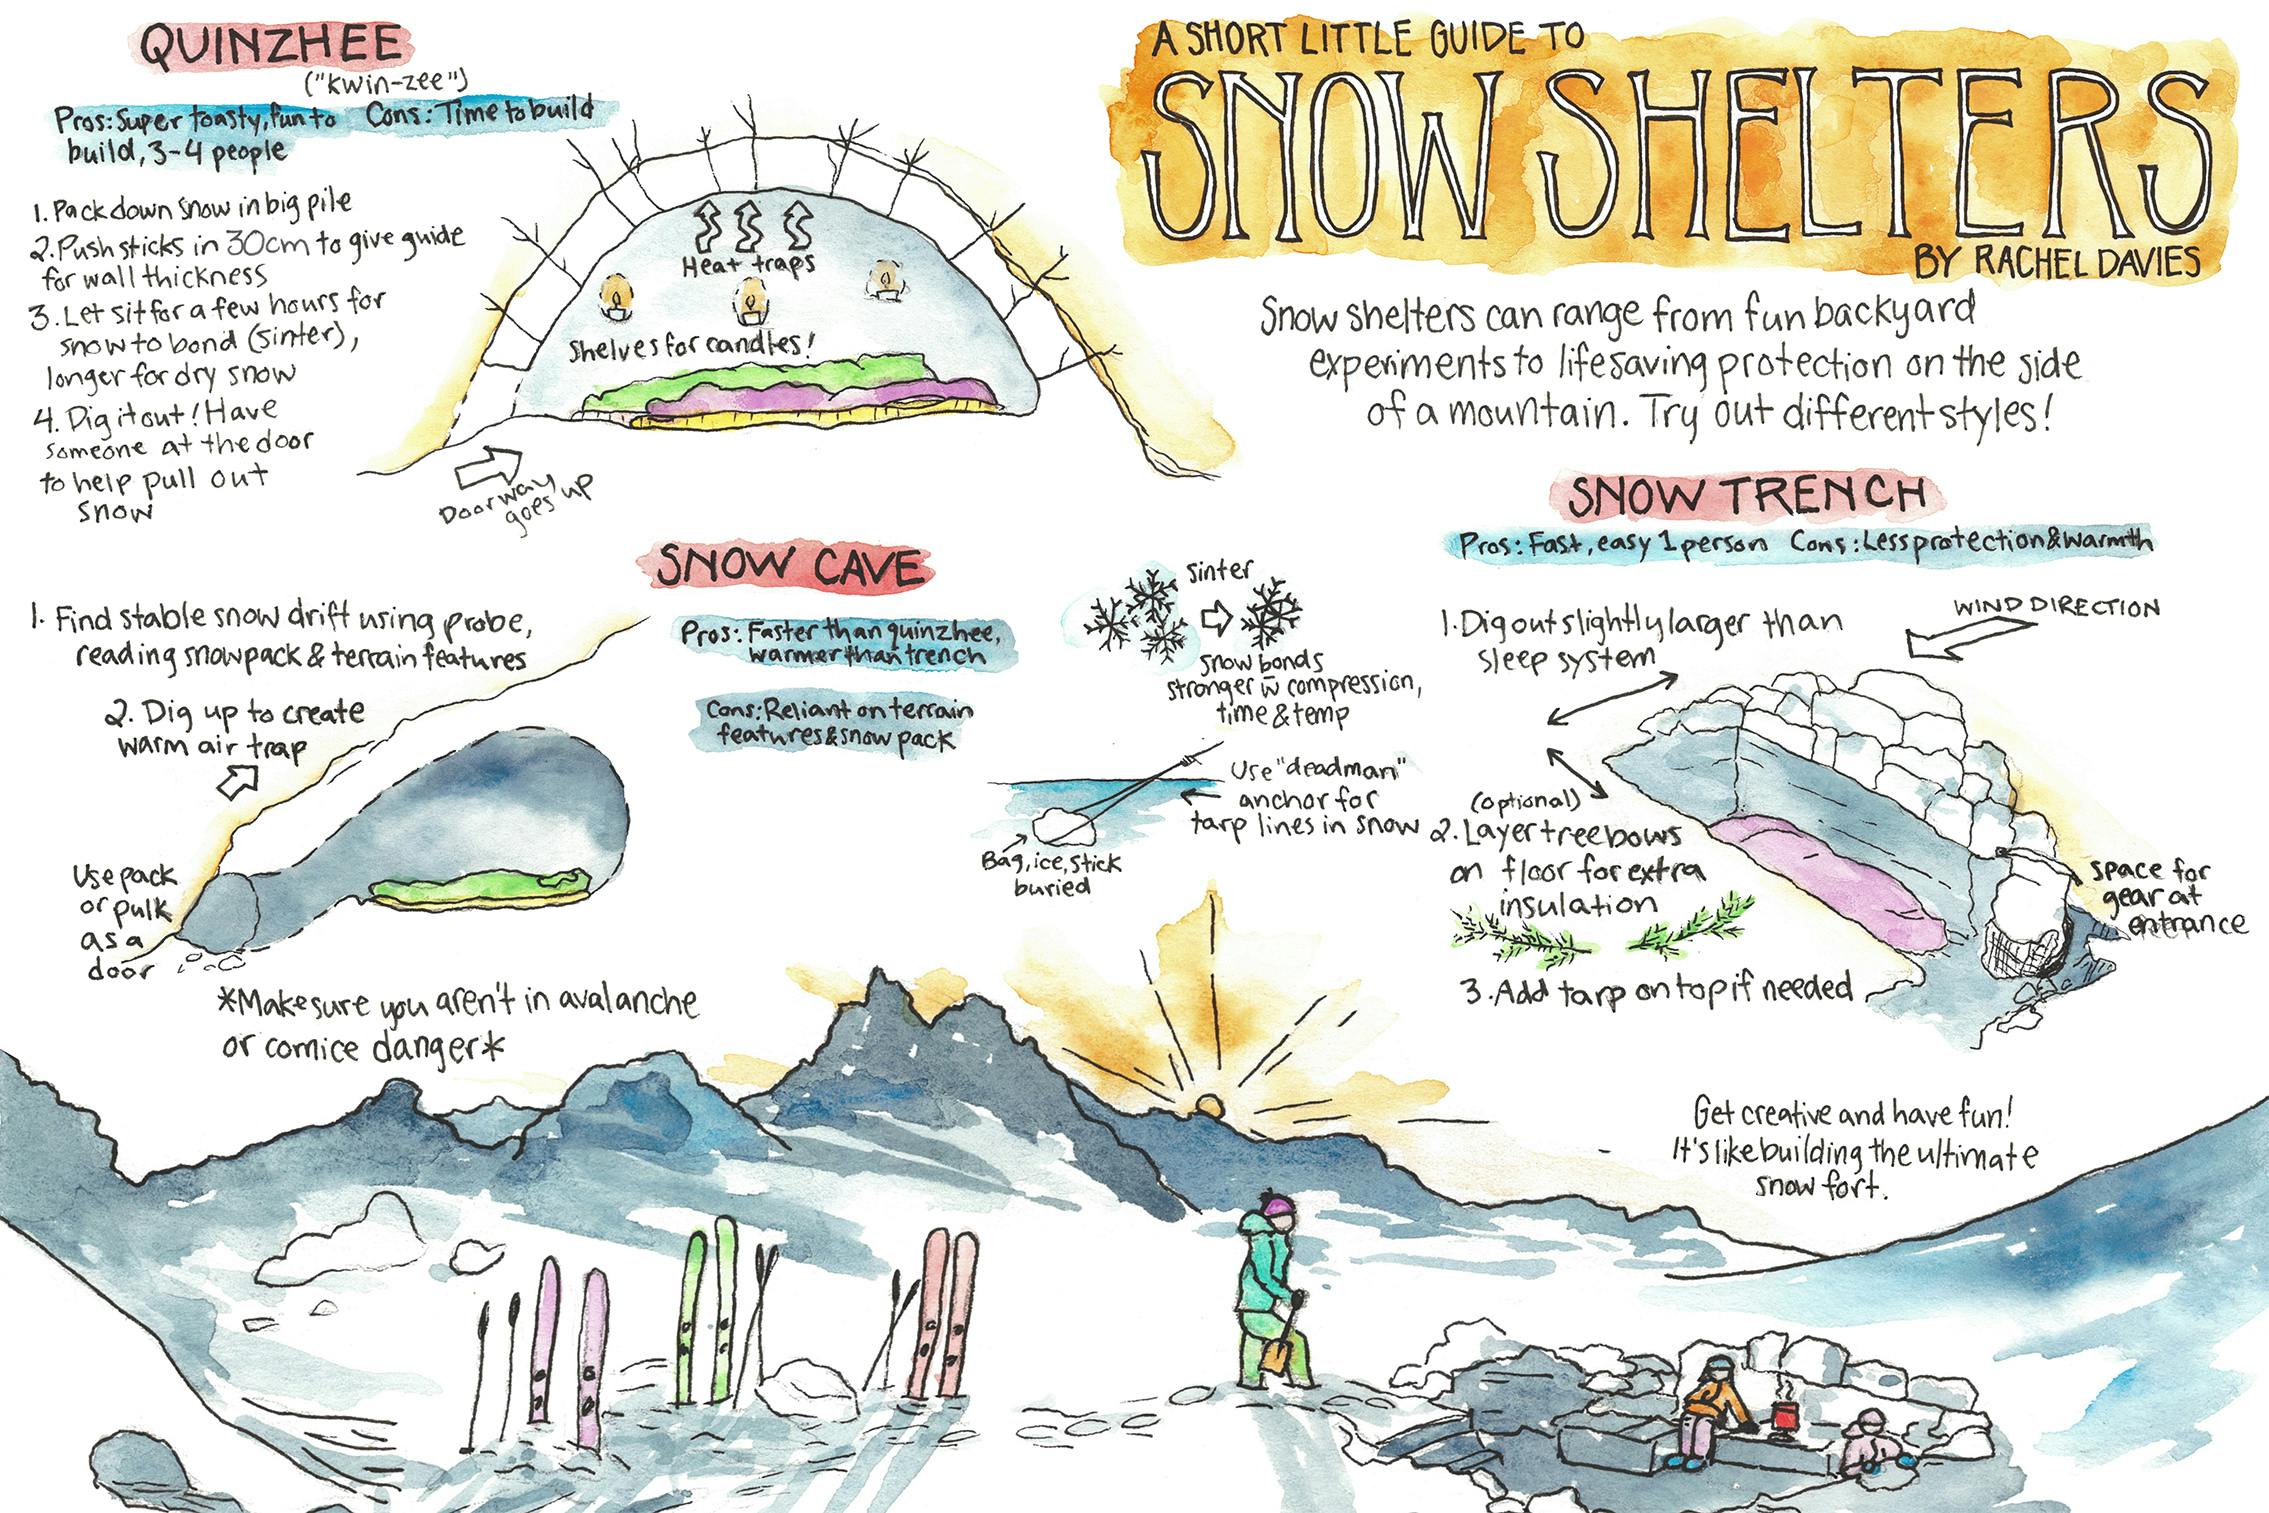 A SHORT LITTLE GUIDE TO
SNOW SHELTERS
BY RACHEL DAVIES
Snow shelters can range from fun backyard
experiments to lifesaving protection on the side
of a mountain. Try out different styles!
QUINZHEE
("kwin-zee")
Pros: Super toasty, fun to
build, 3-4 people
Cons: Time to build
1. Pack down snow in big pile
2. Push sticks in 30cm to give guide
for wall thickness
3. Let sit for a few hours for
snow to bond (sinter),
longer for dry snow
4. Dig it out! Have
someone at the door
to help pull out
snow
Heat traps
Shelves for candles!
Doorway
goes up
SNOW CAVE
Pros: Faster than quinzhee,
warmer than trench
Cons: Reliant on terrain
features & snow pack
1. Find stable snow drift using probe,
reading snowpack & terrain features
2. Dig up to create
warm air trap
Use pack
or pulk
as a
door
*Make sure you aren't in avalanche
or cornice danger*
sinter
snow bonds
stronger w̄ compression,
time & temp
Use "deadman"
anchor for
tarp lines in snow
Bag, ice, stick
buried
SNOW TRENCH
Pros: Fast, easy 1 person Cons: Less protection & warmth
1. Dig out slightly larger than
sleep system
WIND DIRECTION
(optional)
2. Layer tree bows
on floor for extra
insulation
3. Add tarp on top if needed
space for
gear at
entrance
Get creative and have fun!
It's like building the ultimate
snow fort.